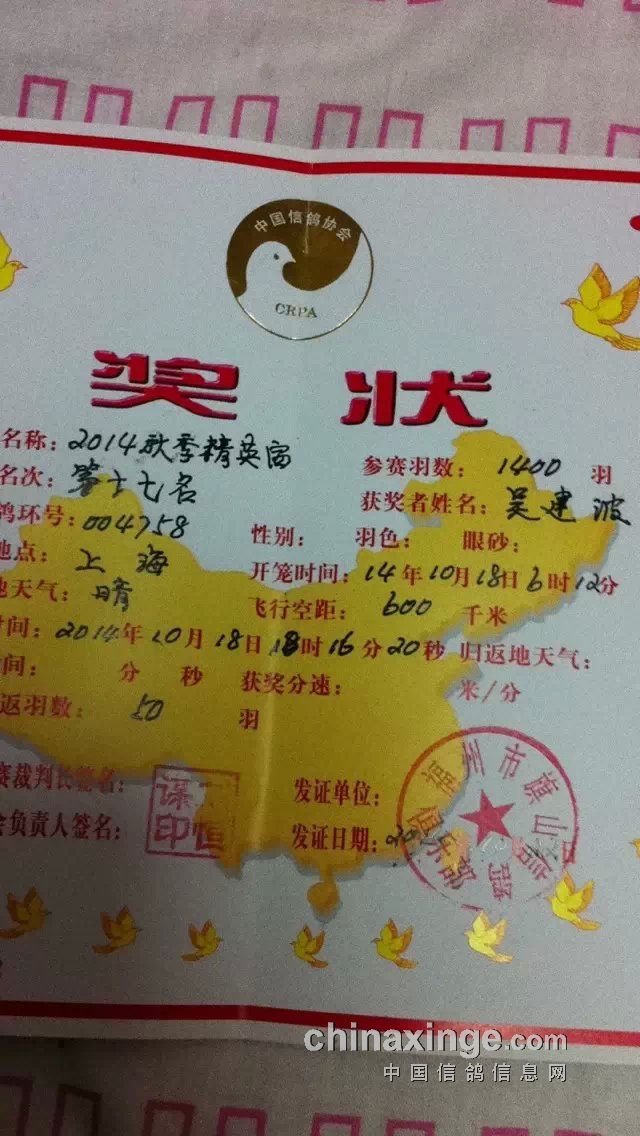 中国信鸽协会
CRPA
奖状
名称：2014秋季精英赛
参赛羽数：1400羽
名次：第十七名
获奖者姓名：吴建波
鸽环号：004758
性别： 羽色： 眼砂：
地点：上海
开笼时间：14年10月18日6时12分
地天气：晴
飞行空距：600千米
时间：2014年10月18日18时16分20秒 归返地天气：
间： 分 秒 获奖分速： 米/分
返羽数：50羽
赛裁判长签名：
发证单位：
会负责人签名：
发证日期：
福州市旗山
俱乐部
chinaxinge.com
中国信鸽信息网